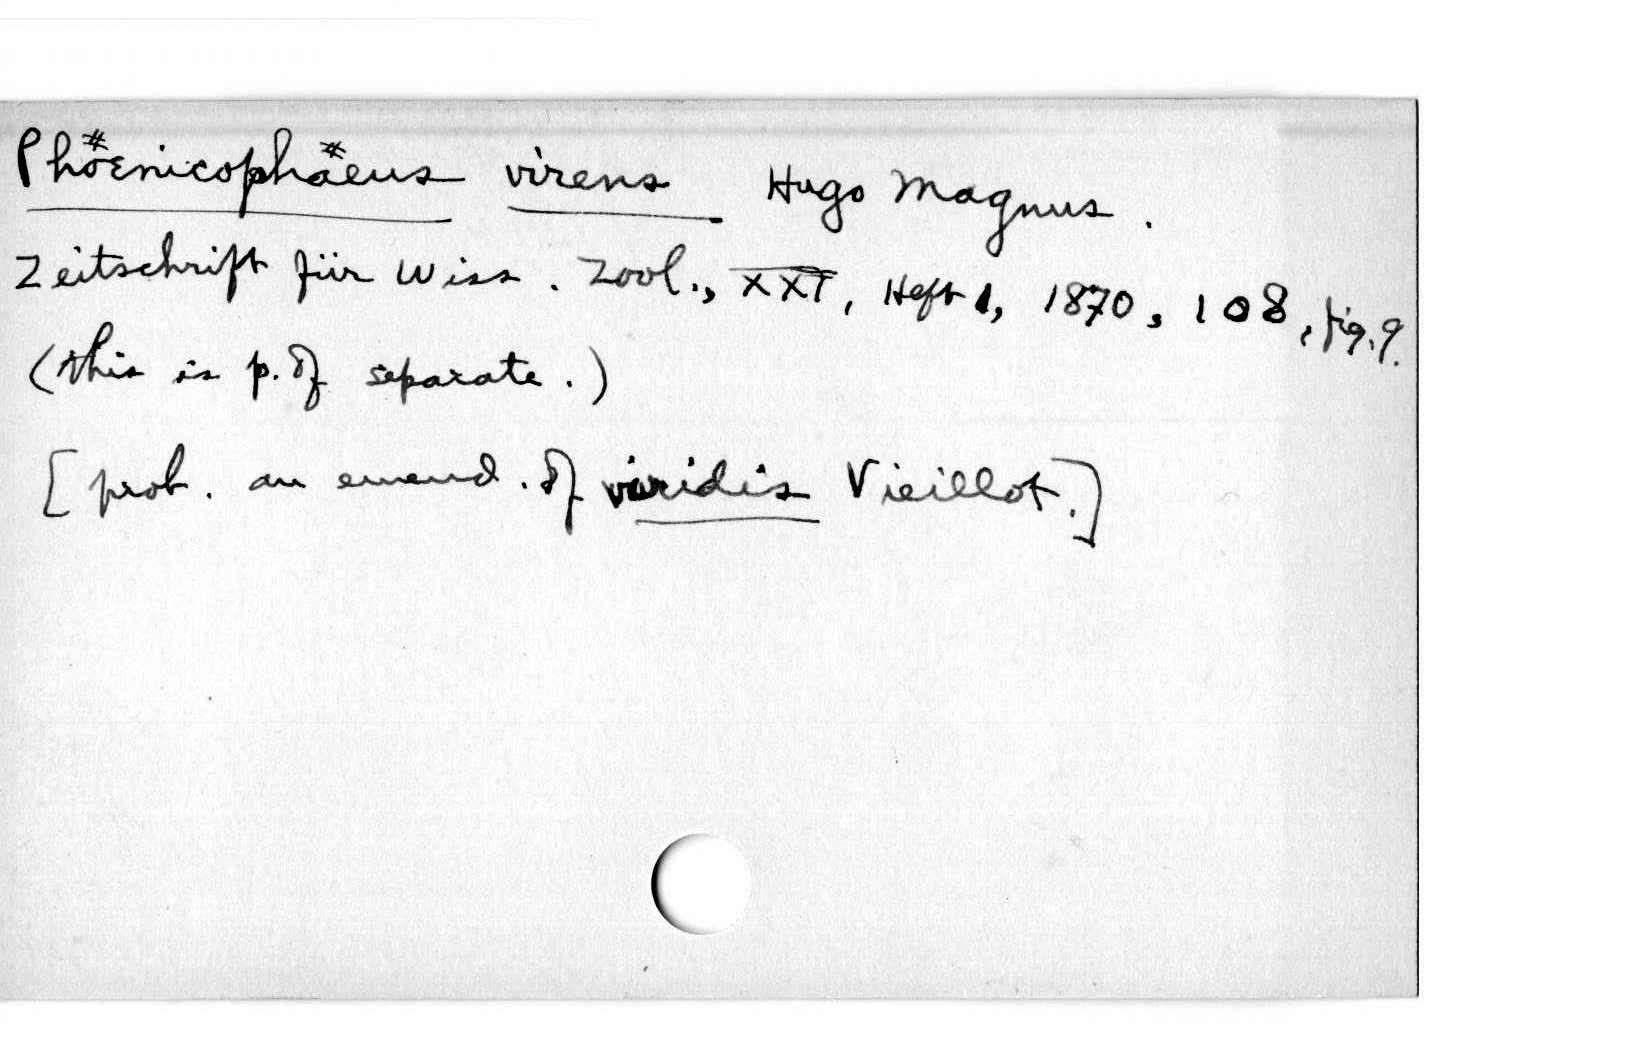 Phöenicophäeus virens Hugo Magnus.
Zeitschrift für Wiss. Zool., XXI, Heft 1, 1870, 108, fig. 9.
(this is p. of separate.)
[prob. an emend. of viridis Vieillot.]